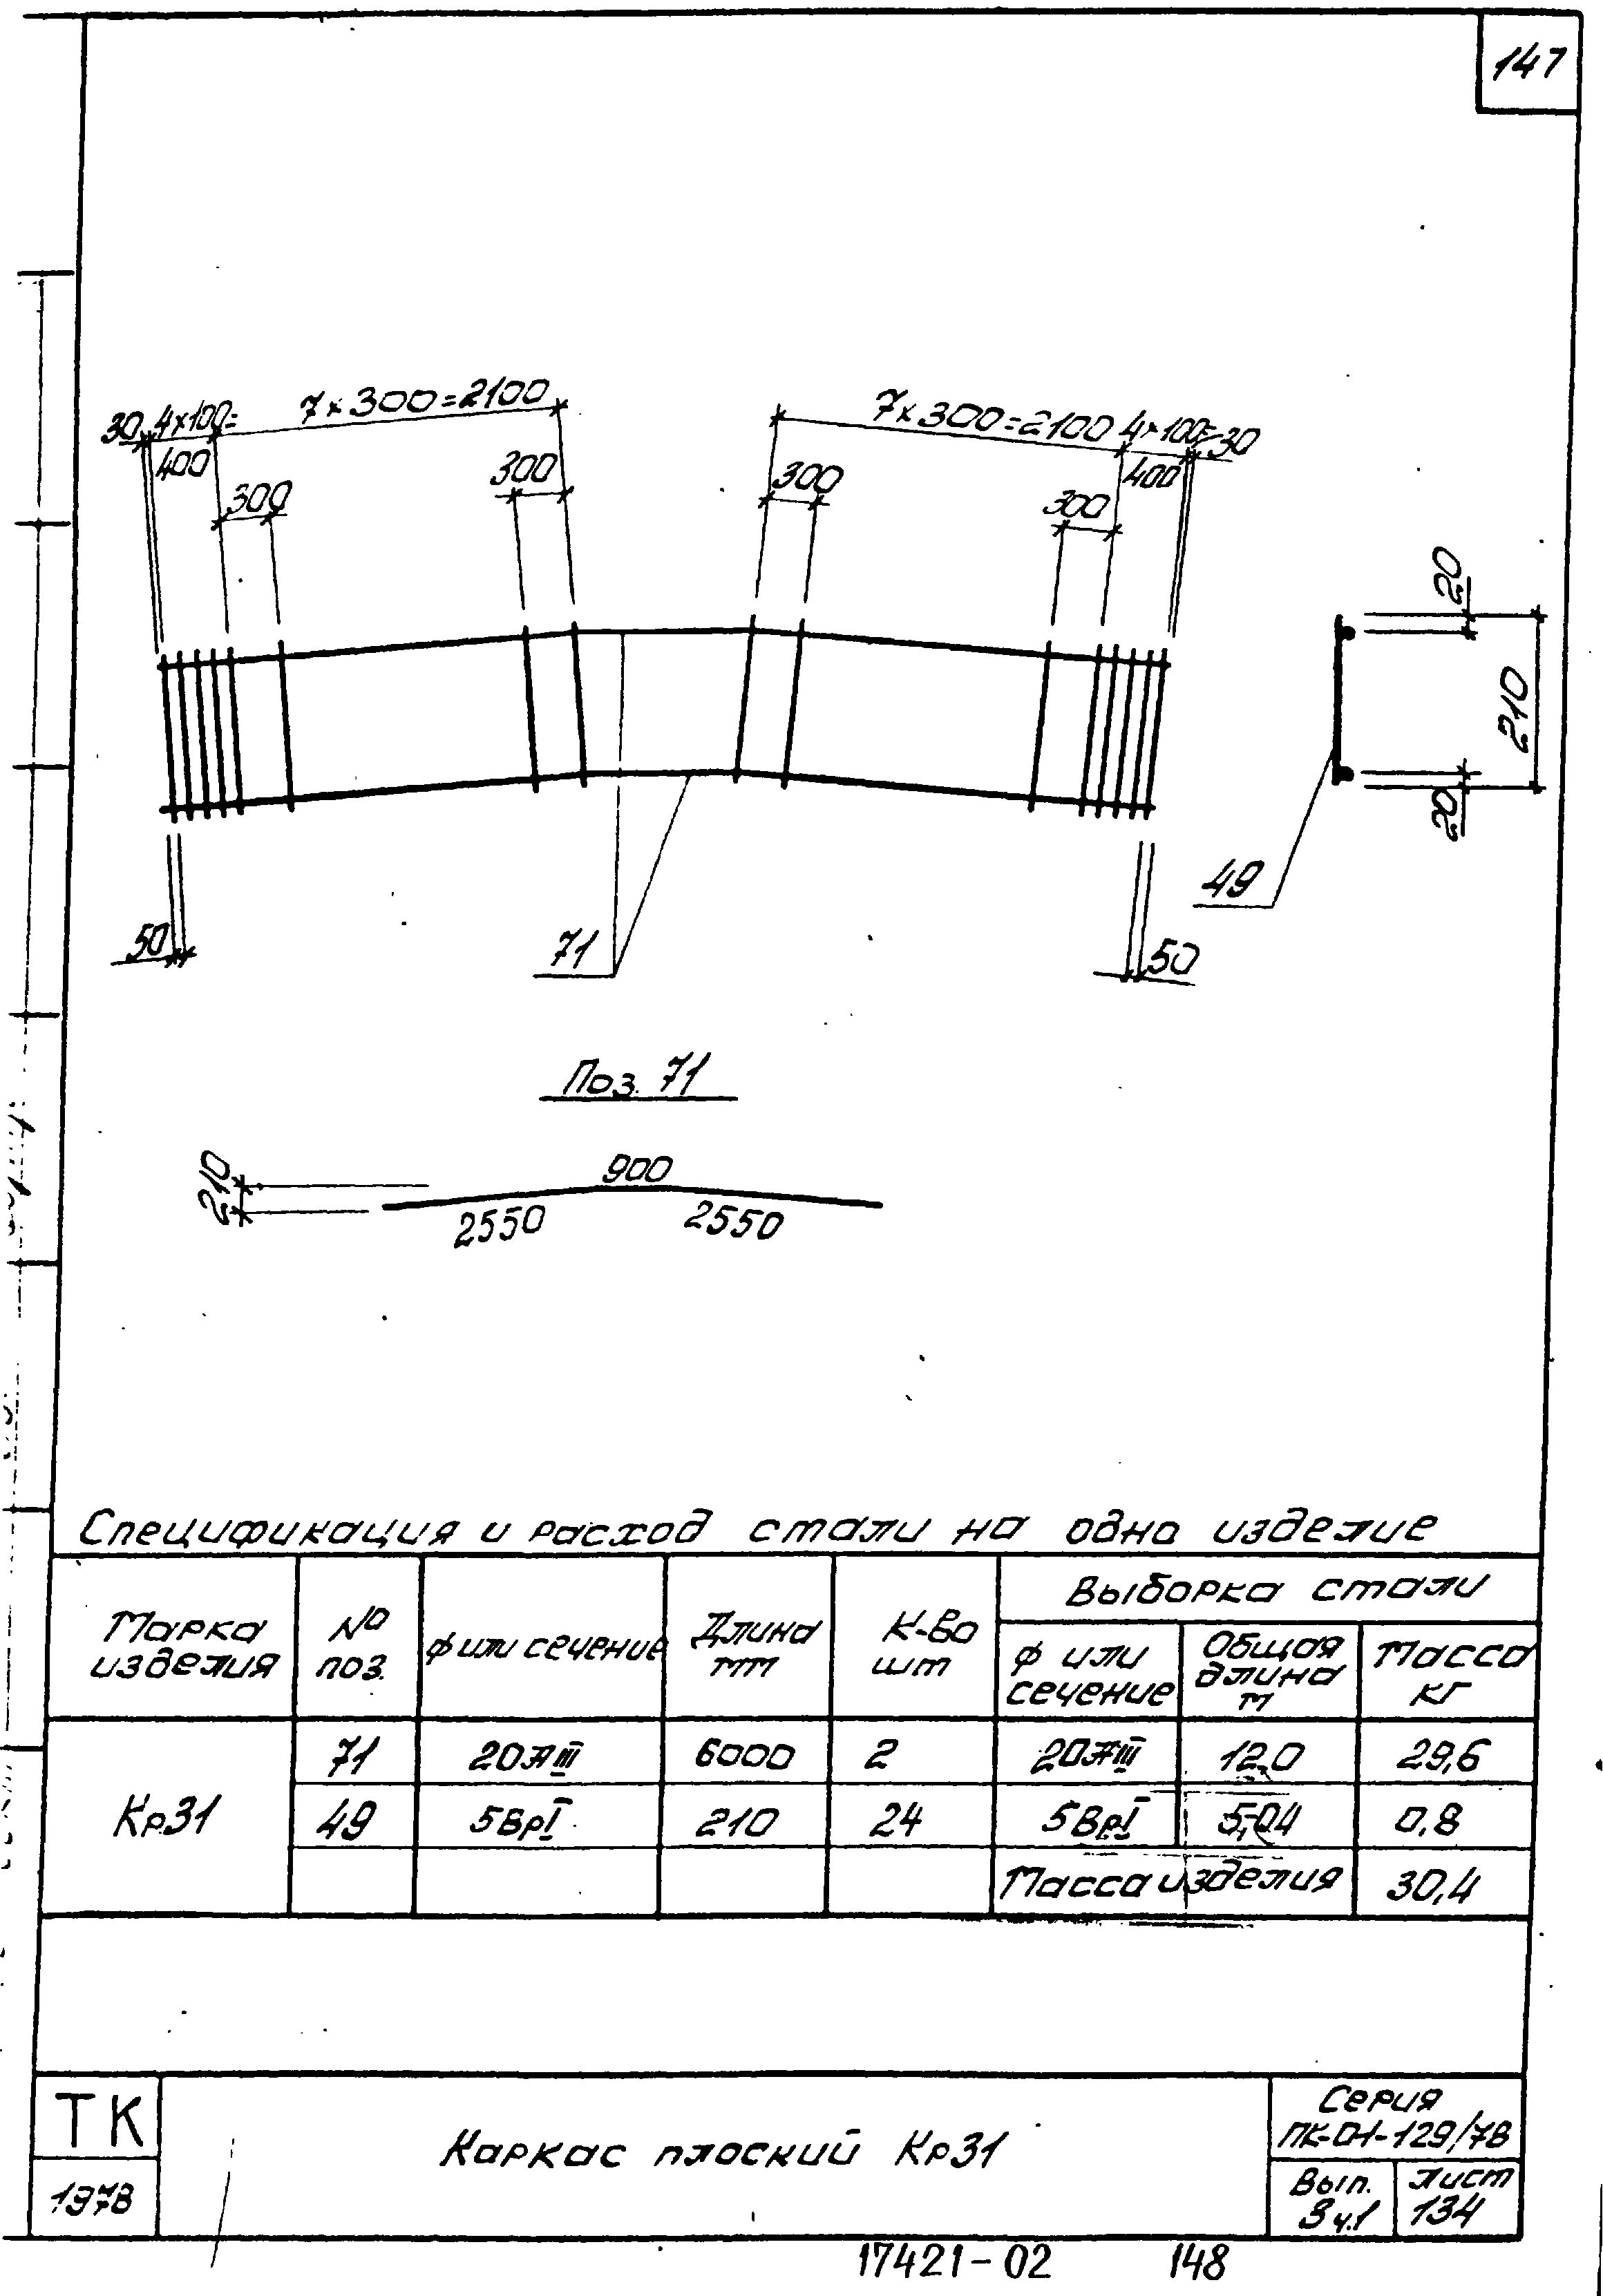 147
30 4×100= 7×300=2100 7×300=2100 4×100= 30
400 300 300 300 300 400
20
210
20
49
50 71 50
Поз. 71
210 900
2550 2550
Спецификация и расход стали на одно изделие
Марка изделия № поз. ф или сечение Длина мм К-во шт Выборка стали
ф или сечение Общая длина м Масса кг
Кр31 71 20АIII 6000 2 20АIII 12,0 29,6
49 5ВрI 210 24 5ВрI 5,04 0,8
Масса изделия 30,4
ТК
1978
Каркас плоский Кр31
Серия
ПК-01-129/78
Вып. Лист
3 ч.1 134
17421-02 148